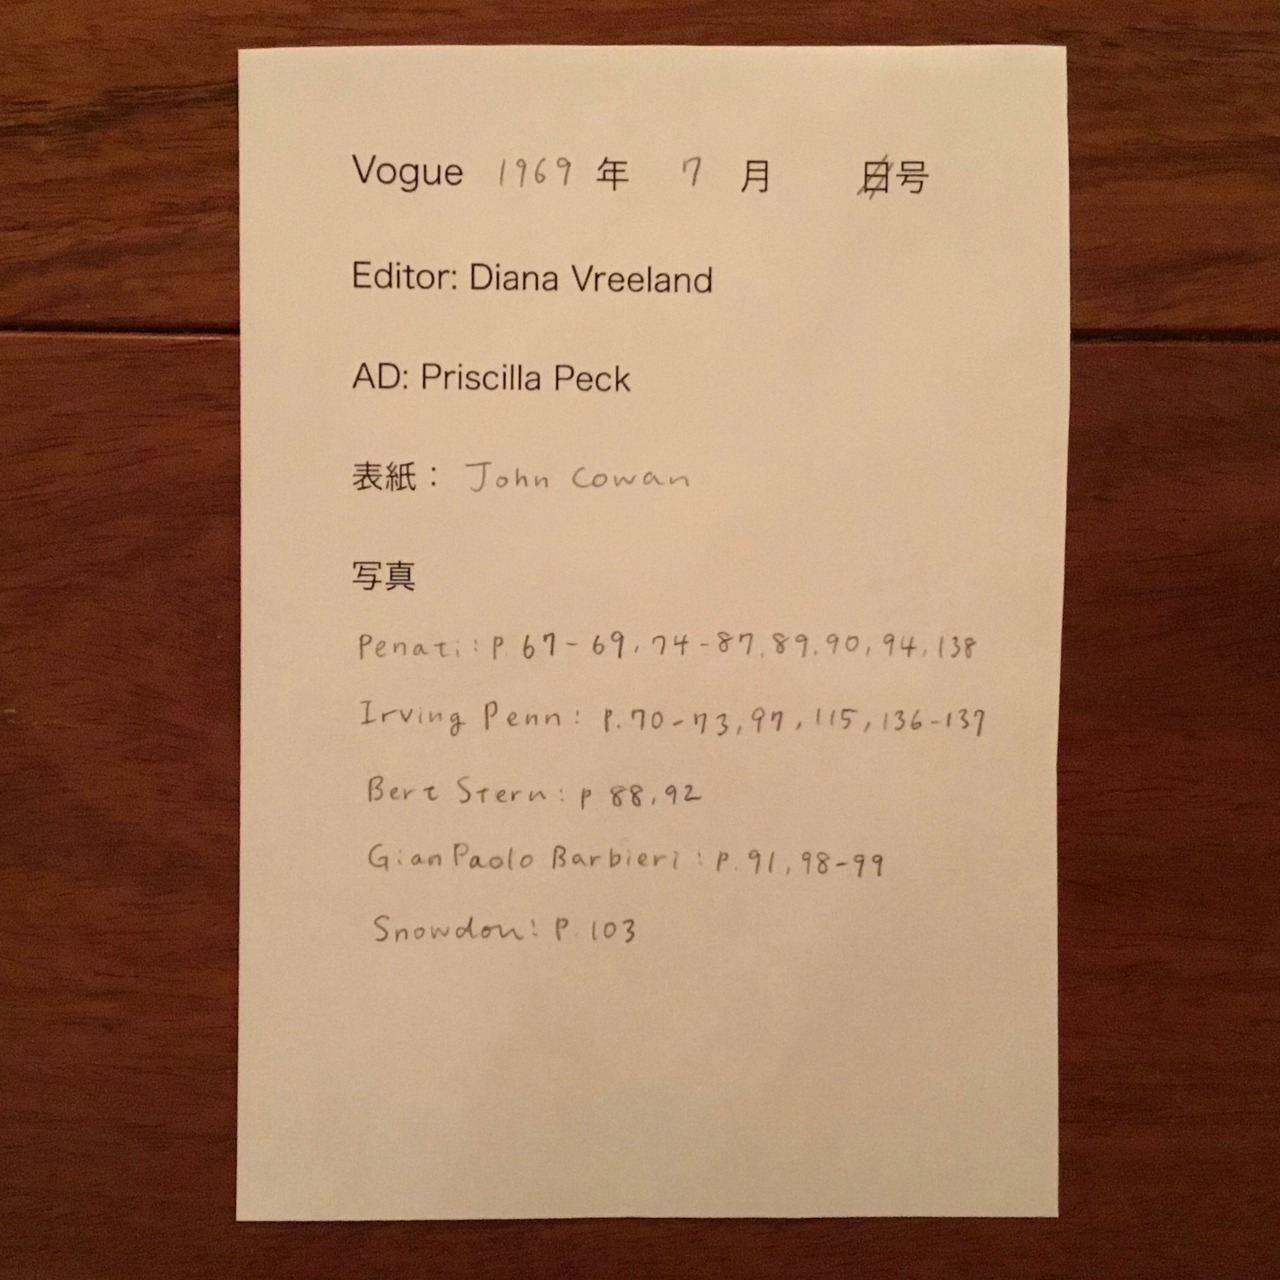 Vogue 1969 年 7 月 日号
Editor: Diana Vreeland
AD: Priscilla Peck
表紙： John Cowan
写真
Penati: P. 67-69, 74-87, 89, 90, 94, 138
Irving Penn: P. 70-73, 97, 115, 136-137
Bert Stern: p 88, 92
Gian Paolo Barbieri: P. 91, 98-99
Snowdon: P. 103